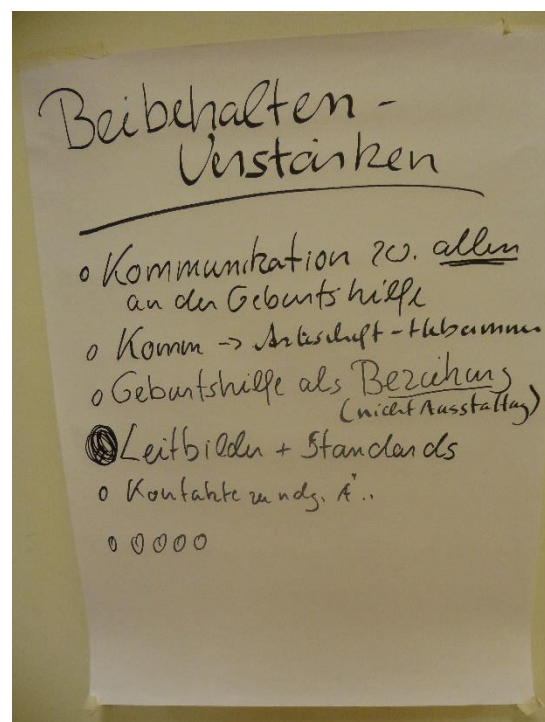 Beibehalten -
Verstärken
o Kommunikation zw. allen
an der Geburtshilfe
o Komm -> Ärzteschaft - Hebammen
o Geburtshilfe als Beziehung
(nicht Ausstattung)
Leitbilder + Standards
o Kontakte zu Ä..
o o o o o